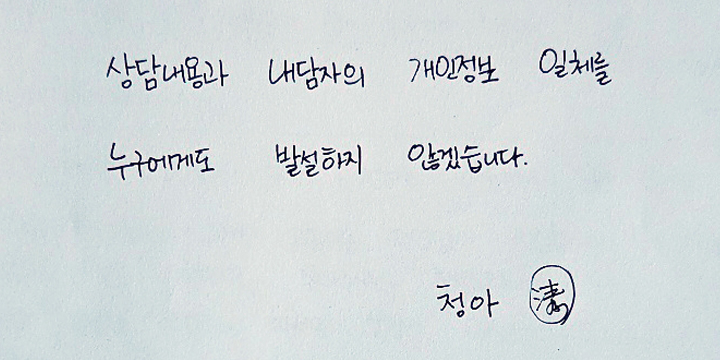 상담내용과 내담자의 개인정보 일체를
누구에게도 발설하지 않겠습니다.
청아 淸